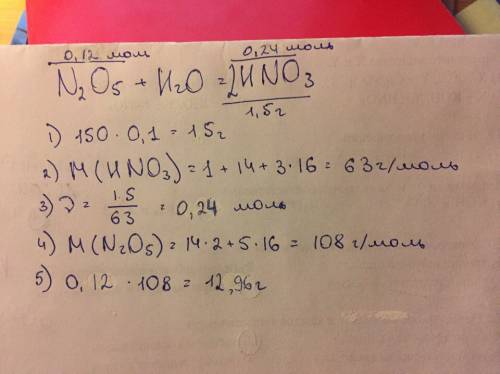 0,12 моль 0,24 моль
N₂O₅ + H₂O = 2HNO₃
1,5г
1) 150 · 0,1 = 15г
2) M(HNO₃) = 1 + 14 + 3·16 = 63г/моль
3) ν = 15/63 = 0,24 моль
4) M(N₂O₅) = 14·2 + 5·16 = 108г/моль
5) 0,12 · 108 = 12,96г